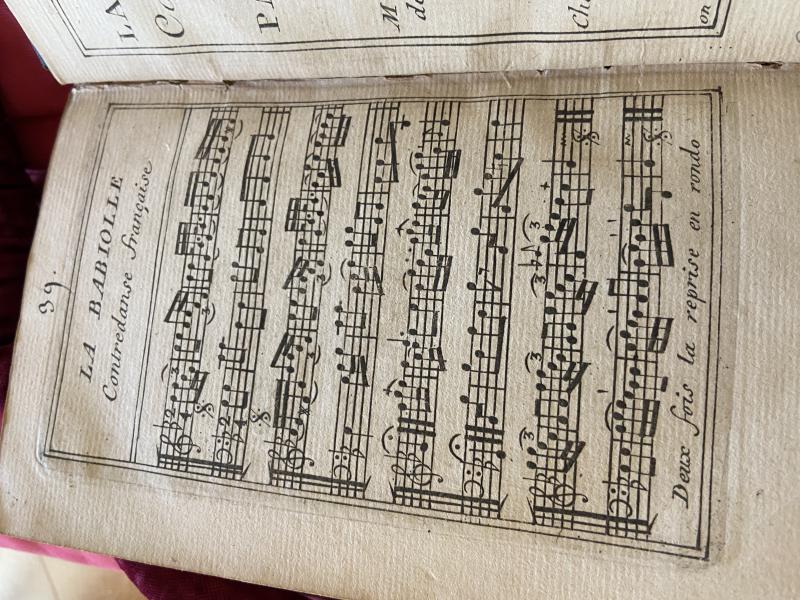 39.
LA BABIOLLE
Contredanse française
Deux fois la reprise en rondo
LA
P
M
on